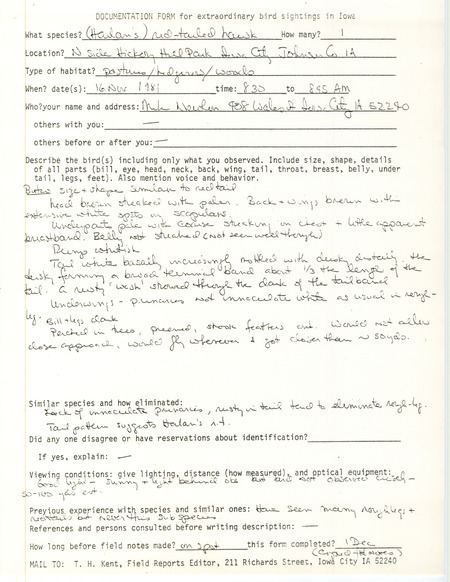 DOCUMENTATION FORM for extraordinary bird sightings in Iowa
What species? (Harlan's) red-tailed hawk How many? 1
Location? N Side Hickory Hill Park Iowa City Johnson Co. IA
Type of habitat? pastures/hedgerows/woods
When? date(s): 16 Nov 1981 time: 830 to 845 AM
Who? your name and address: Mike Newlon 908 Iowa City IA 52240
others with you: —
others before or after you: —
Describe the bird(s) including only what you observed. Include size, shape, details
of all parts (bill, eye, head, neck, back, wing, tail, throat, breast, belly, under
tail, legs, feet). Also mention voice and behavior.
size + shape similar to redtail
head brown streaked with paler. Back + wings brown with
extensive white spots on scapulars.
Underparts pale with coarse streaking on chest + little apparent
breastband. Belly not streaked (not seen well though)
Rump whitish
Tail white basally increasingly mottled with dusky distally. the
dusky forming a broad terminal band about 1/3 the length of the
tail. A rusty "wash" showed through the dark of the tailband
Underwings - primaries not immaculate white as usual in rough-
leg. Bill + legs dark
Perched in trees, preened, shook feathers out. Would not allow
close approach, would fly whenever I got closer than ~ 50 yds.
Similar species and how eliminated:
Lack of immaculate primaries, rusty in tail tend to eliminate rough-leg.
Tail pattern suggests Harlan's r.t.
Did any one disagree or have reservations about identification?
If yes, explain: —
Viewing conditions: give lighting, distance (how measured), and optical equipment:
Good light - sunny + light behind me but bird not observed closely -
50-100 yds est.
Previous experience with species and similar ones: Have seen many roughlegs +
redtails but never this subspecies
References and persons consulted before writing description: —
How long before field notes made? on spot this form completed? 1 Dec
(from notes)
MAIL TO: T. H. Kent, Field Reports Editor, 211 Richards Street, Iowa City IA 52240